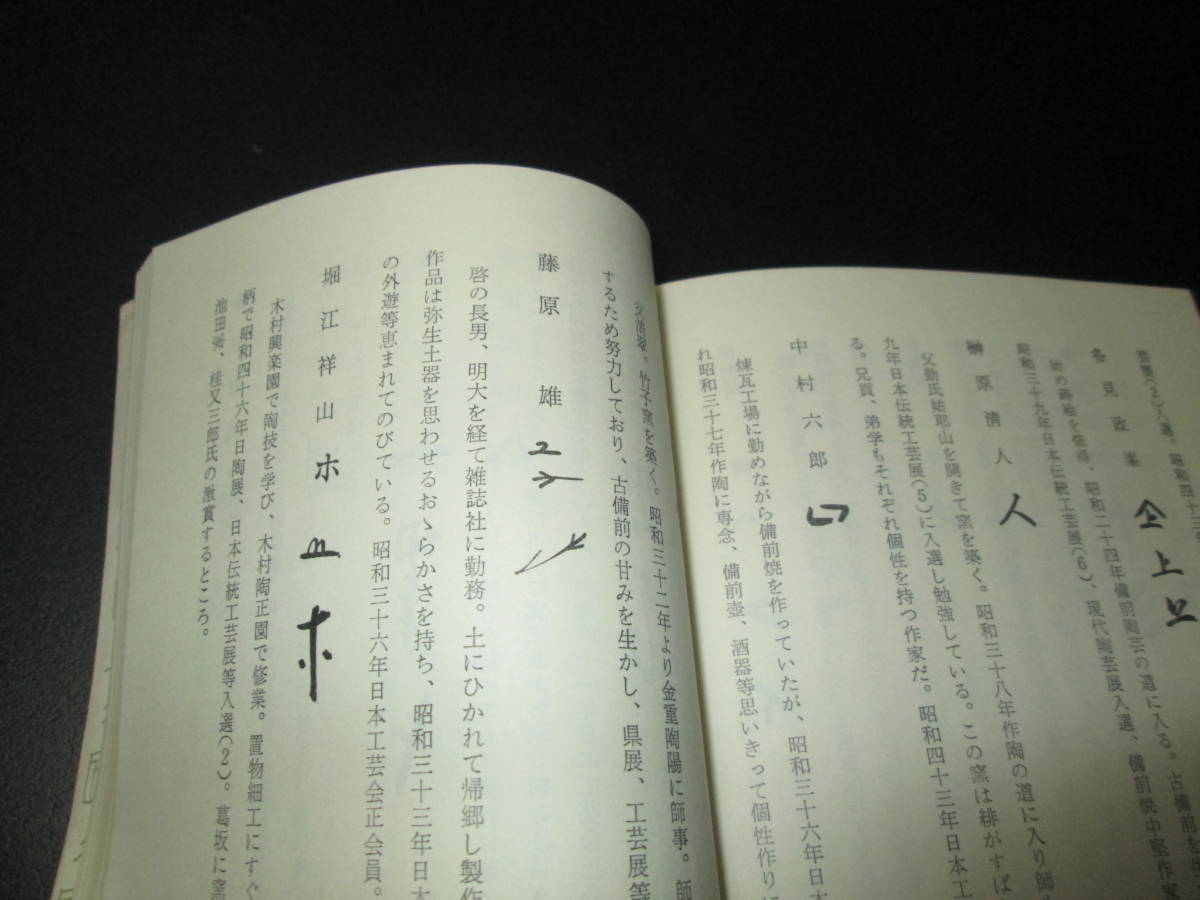 入選。昭和四十
各見政峯
始め蒔絵を修得、昭和二十四年備前陶芸の道に入る。古備前を
昭和三十九年日本伝統工芸展(6)、現代陶芸展入選、備前焼中堅作家
榊原清人
父勤氏姑耶山を開きて窯を築く。昭和三十八年作陶の道に入り師
九年日本伝統工芸展(5)に入選し勉強している。この窯は緋がすば
る。兄貢、弟学もそれぞれ個性を持つ作家だ。昭和四十三年日本工
中村六郎
煉瓦工場に勤めながら備前焼を作っていたが、昭和三十六年日本
れ昭和三十七年作陶に専念、備前壺、酒器等思いきって個性作りに
竹子窯を築く。昭和三十二年より金重陶陽に師事。師
するため努力しており、古備前の甘みを生かし、県展、工芸展等
藤原雄
啓の長男、明大を経て雑誌社に勤務。土にひかれて帰郷し製作
作品は弥生土器を思わせるおゝらかさを持ち、昭和三十三年日本
の外遊等恵まれてのびている。昭和三十六年日本工芸会正会員。
堀江祥山
木村興楽園で陶技を学び、木村陶正園で修業。置物細工にすぐ
柄で昭和四十六年日陶展、日本伝統工芸展等入選(2)。葛坂に窯
池田 、桂又三郎氏の激賞するところ。